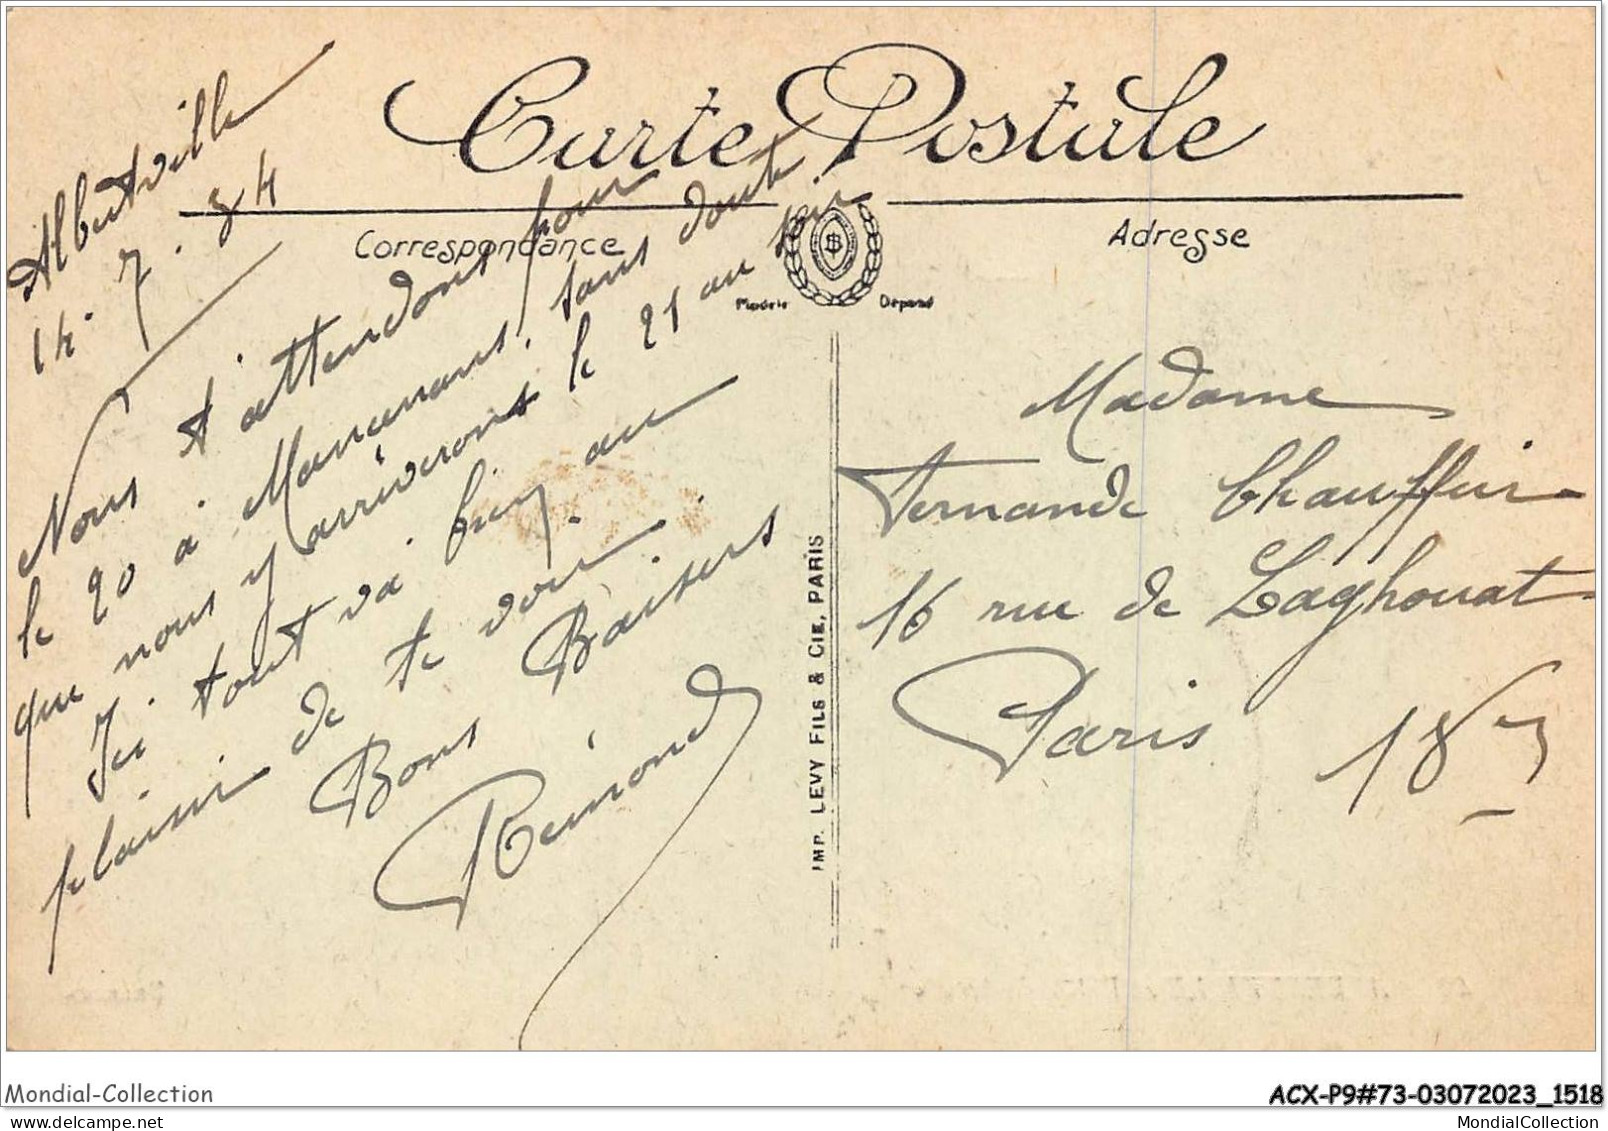 Carte Postale
Correspondance
Adresse
Modèle Déposé
Albertville
14. 7. 24
Nous t'attendons pour
le 20 à sans doute
que nous y arriverons le 21 au soir
Ici tout va bien. au
plaisir de te voir
Bons Baisers
Rémond
IMP. LEVY FILS & CIE, PARIS
Madame
Fernande Chauffeir
16 rue de Laghouat
Paris 18e
Mondial-Collection
ACX-P9#73-03072023_1518
www.delcampe.net
MondialCollection